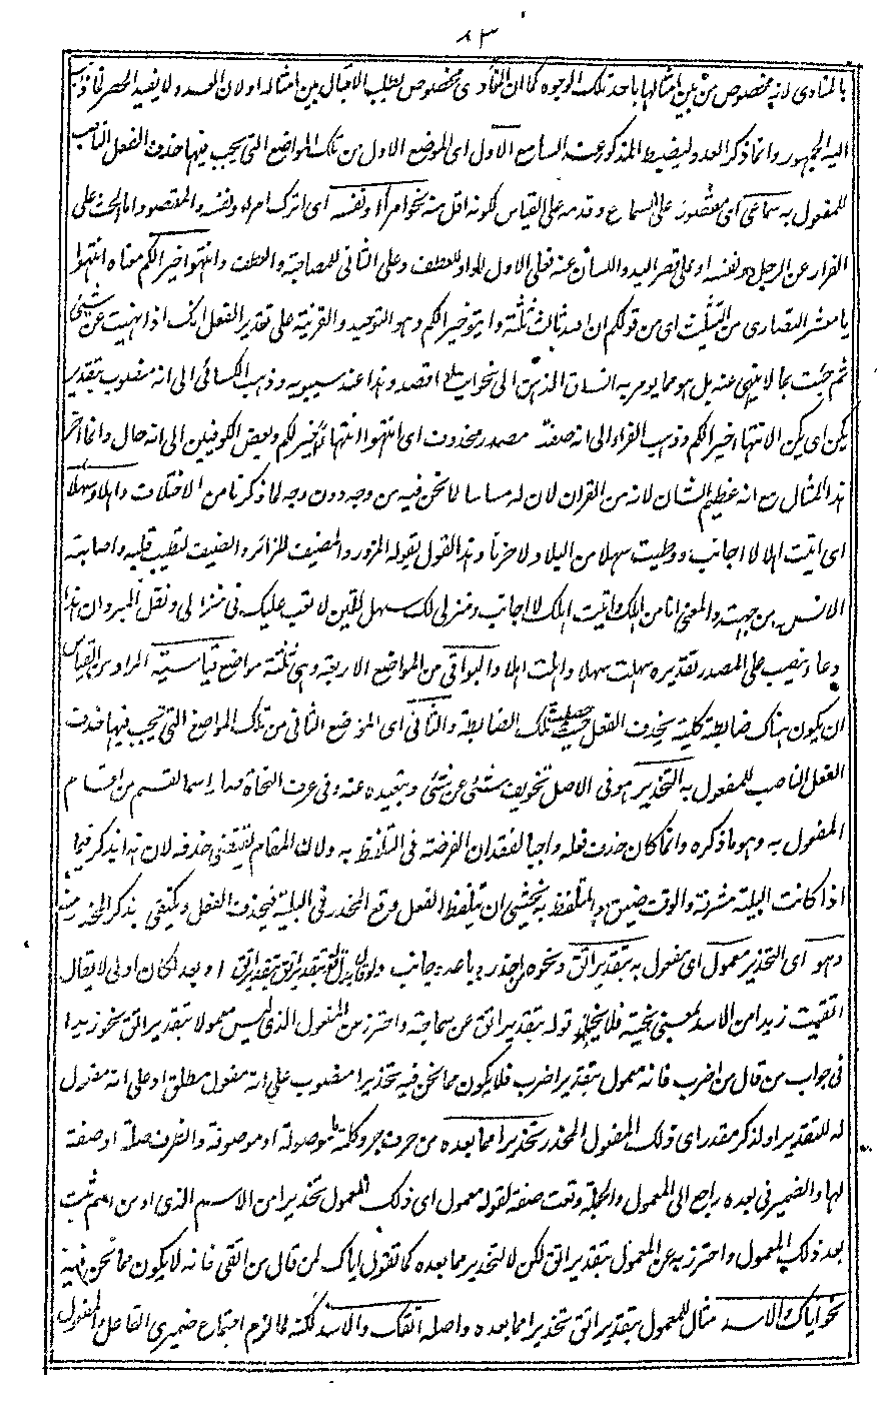 ٨٣
بالمنادى لانه مخصوص من بين امثالها باحد تلك الوجوه كما ان المنادى مخصوص بطلب الاقبال بين امثاله او لان العدد لا يفيد الحصر كما ذهب
اليه الجمهور وانما ذكر العدد ليضبط المذكور عند السامع الاول اى الموضع الاول من تلك المواضع التى يجب فيها حذف الفعل الناصب
للمفعول به سماعى اى مقصور على السماع وقدمه على القياس لكونه اقل منه نحو امرأ ونفسه اى اترك امرأ ونفسه والمقصود اما الحث على
الفرار عن الرجل ونفسه او على قصر اليد واللسان عنه فعلى الاول الواو للعطف وعلى الثانى للمصاحبة والعطف وانتهوا خيرا لكم معناه انتهوا
يا معشر النصارى من التثليث اى من قولكم ان الله ثالث ثلثة وايتوا خيرا لكم وهو التوحيد والقرينة على تقدير الفعل انك اذا نهيت عن شئ
ثم جئت بما لا ينهى عنه بل هو مما يومر به انساق الذهن الى نحو ايت او اقصد وهذا عند سيبويه وذهب الكسائى الى انه منصوب بتقدير
يكن اى يكن الانتهاء خيرا لكم وذهب الفراء الى انه صفة مصدر محذوف اى انتهوا انتهاء خيرا لكم وبعض الكوفيين الى انه حال وانما اخر
هذا المثال مع انه عظيم الشان لانه من القران لان له مساسا لما نحن فيه من وجه دون وجه لما ذكرنا من الاختلاف واهلا وسهلا
اى اتيت اهلا لا اجانب ووطيت سهلا من البلاد لا حزنا وهذا القول يقوله المزور والمضيف للزائر والضيف لتطيب قلبه واصابته
الانس من جهته والمعنى انا من اهلك واتيت اهلك لا اجانب ومنزلى لك سهل لين لا تعب عليك فى منزلى ونقل المبرد ان هذا
دعاء ونصب على المصدر تقديره سهلت سهلا واهلت اهلا والبواقى من المواضع الاربعة وهى ثلثة مواضع قياسية المراد من القياس
ان يكون هناك ضابطة كلية يحذف الفعل حيث حصلت تلك الضابطة والثانى اى الموضع الثانى من تلك المواضع التى يجب فيها حذف
الفعل الناصب للمفعول به التحذير هو فى الاصل تخويف شئ عن شئ وتبعيده عنه وفى عرف النحاة صار اسما لقسم من اقسام
المفعول به وهو ما ذكره وانما كان حذف فعله واجبا لفقدان الفرصة فى التلفظ به ولان المقام يقتضى حذفه لان هذا يذكر فيما
اذا كانت البلية مشرفة والوقت ضيق والمتلفظ به يخشى ان تلفظ الفعل وقع المحذر فى البلية فيحذف الفعل ويكتفى بذكر المحذر منه
وهو اى التحذير معمول اى مفعول به بتقدير اتق ونحوه من احذر وباعد وجانب ولو قال بتقدير اتق بعد لكان اولى لا يقال
اتقيت زيدا من الاسد بمعنى نحيته فلا يخلو قوله بتقدير اتق عن سماجة واحترز من المفعول الذى ليس معمولا بتقدير اتق نحو زيدا
فى جواب من قال من اضرب فانه معمول بتقدير اضرب فلا يكون مما نحن فيه تحذيرا منصوب على انه مفعول مطلق او على انه مفعول
له للتقدير او لذكر مقدر اى ذلك المفعول المحذر تحذيرا مما بعده من حرف جر وكلمة ما موصولة او موصوفة والظرف صلة او صفة
لها والضمير فى بعده راجع الى المعمول والجملة وقعت صفة لقوله معمول اى ذلك المعمول تحذيرا من الاسم الذى او من اسم ثبت
بعد ذلك المعمول واحترز به عن المعمول بتقدير اتق لكن لا لتحذير مما بعده كما تقول اياك لمن قال من اتقى فانه لا يكون مما نحن فيه
نحو اياك والاسد مثال للمعمول بتقدير اتق تحذيرا مما بعده واصله اتقك والاسد لكنه لما لزم اجتماع ضميرى الفاعل والمفعول